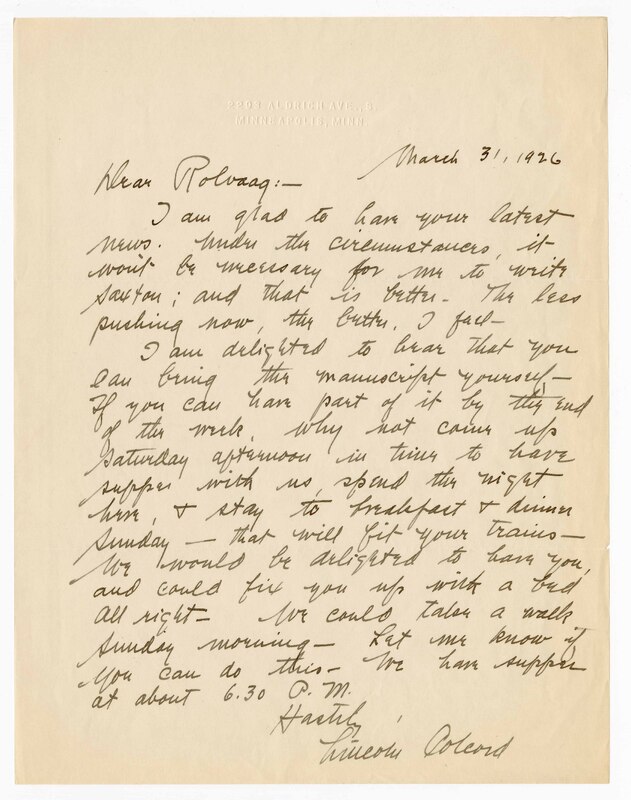 2203 ALDRICH AVE., S.
MINNEAPOLIS, MINN.
March 31, 1926
Dear Rolvaag:—
I am glad to have your latest
news. Under the circumstances, it
won't be necessary for me to write
Saxton; and that is better. The less
pushing now, the better, I feel—
I am delighted to hear that you
can bring the manuscript yourself—
If you can have part of it by the end
of the week, why not come up
Saturday afternoon in time to have
supper with us, spend the night
here, & stay to breakfast & dinner
Sunday — that will fit your trains—
We would be delighted to have you,
and could fix you up with a bed
all right— We could take a walk
Sunday morning— Let me know if
you can do this— We have supper
at about 6.30 P.M.
Hastily,
Lincoln Colcord